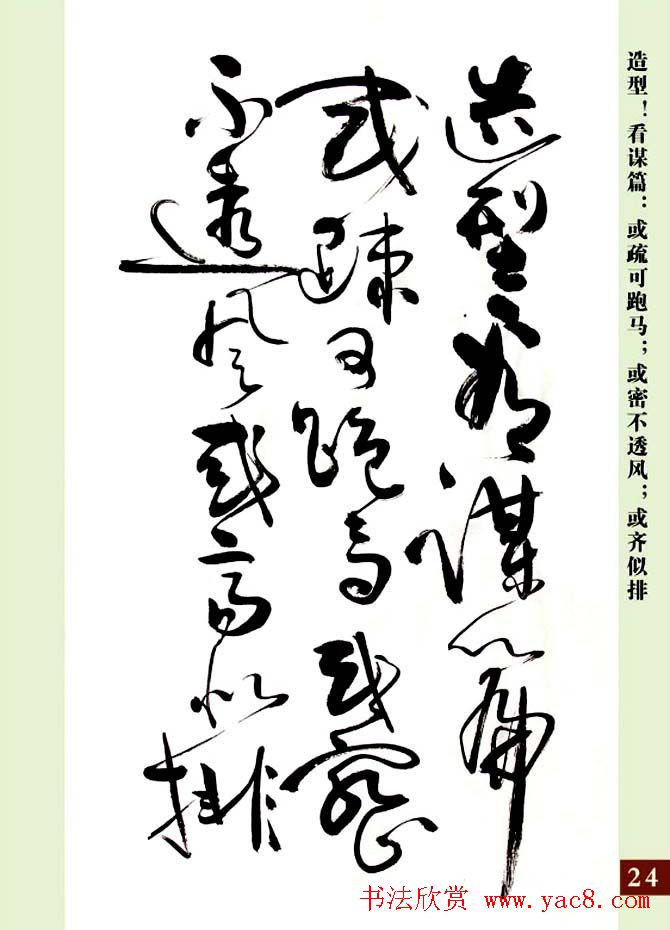 造型看谋篇
或疏可跑马或密
不透风或齐似排
造型！看谋篇：或疏可跑马；或密不透风；或齐似排
24
书法欣赏 www.yac8.com